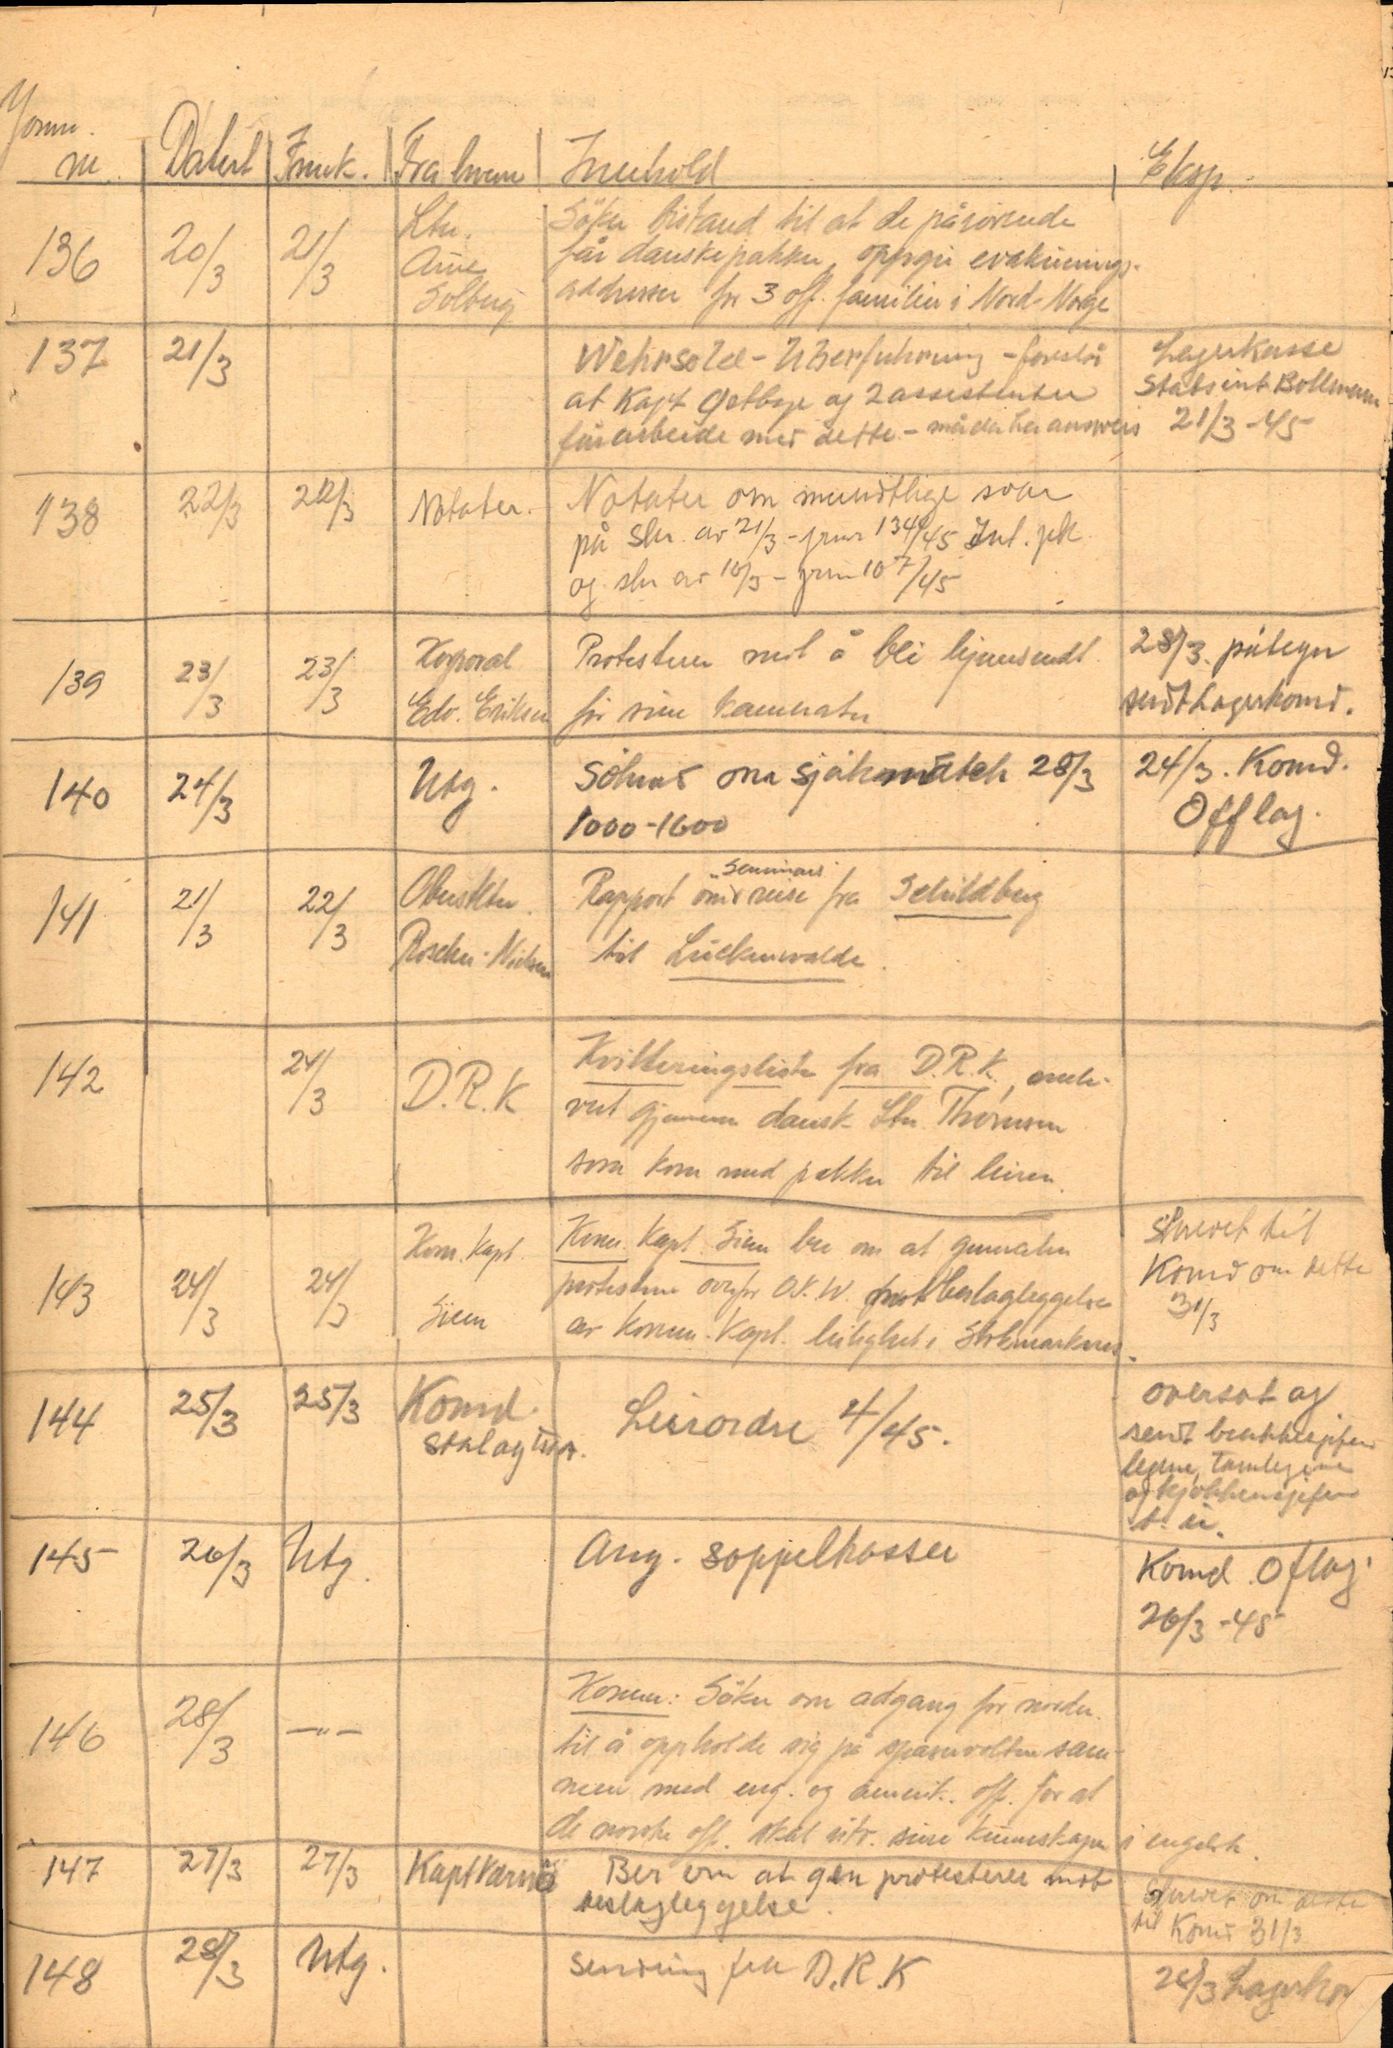 Journ.
nr. Datert Innk. Fra hvem Innhold Eksp.
136 20/3 21/3 Ltn. Arne Solberg
Söker bistand til at de pårörende
får danskepakker, oppgir evakuerings-
addresser for 3 off. familier i Nord-Norge
137 21/3
Wehrsold - Überführung - foreslår
at Kapt Getbye og 2 assistenter
får arbeide med dette - må da ha answeis
Lagerkasse
Stabsint Bollmann
21/3-45
138 22/3 22/3 Notater.
Notater om muntlige svar
på skr. av 21/3 - jrnr 134/45 Int. pk
og skr av 10/3 - jrnr 107/45
139 23/3 23/3 Korporal Edv. Eriksen
Protesterer mot å bli hjemsendt
för sine kamerater
28/3. påtegn
sendt Lagerkomd.
140 24/3 Utg.
Söknad om sjakkmatch 28/3
1000-1600
24/3. Komd.
Offlag.
141 21/3 22/3 Oberstltn. Roscher-Nielsen
Seminars
Rapport om reise fra Schildberg
til Luckenwalde.
142 24/3 D.R.K
Kvitteringsliste fra D.R.K., mott-
vet gjennem dansk Ltn. Thomsen
som kom med pakker til leiren.
143 24/3 24/3 Kom. Kapt. Siem
Kom. Kapt. Siem ber om at generalen
protesterer overfor O.K.W. mot beslagleggelse
av Komm. Kapt. leilighet i Stokmarknes.
Skrevet til
Komd om dette
31/3
144 25/3 25/3 Komd. Stalag IIIA.
Leirordre 4/45.
oversat og
sendt brakkesjefer
legene, tannlegene
og kjökkensjefer
145 26/3 Utg.
Ang. soppelkasser
Komd. Oflag.
26/3-45
146 28/3 -"-
Komm: Söker om adgang for norske
til å oppholde sig på spaservolten sam-
men med eng. og amerik. off. for at
de norske off. skal utv. sine kunnskaper i engelsk.
147 27/3 27/3 Kapt Værnö
Ber om at gen protesterer mot
beslagleggelse.
Skrevet om dette
til Komd 31/3
148 28/3 Utg.
Sending fra D.R.K
28/3 Lagerkom